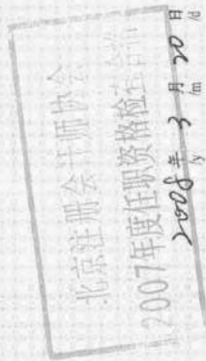 北京注册会计师协会
2007年度任职资格检查合格
2008年 3月 20日
/y /m /d